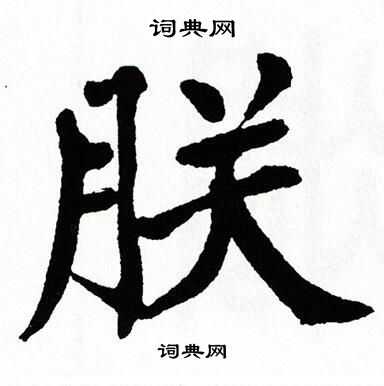 词典网
朕
词典网